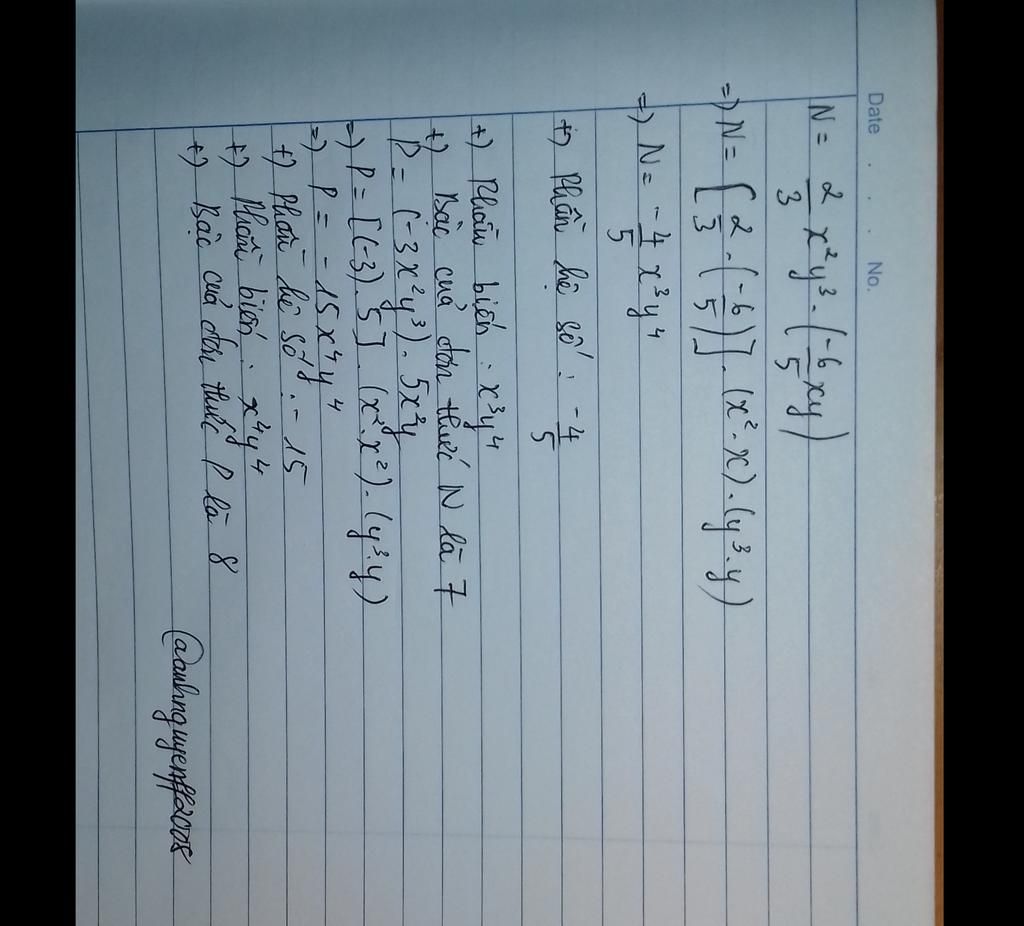 Date . . . No.
N = 2/3 x²y³ . (-6/5 xy)
=) N = [2/3 . (-6/5)] . (x² . x) . (y³ . y)
=) N = -4/5 x³y⁴
+) Phần hệ số : -4/5
+) Phần biến : x³y⁴
+) Bậc của đơn thức N là 7
P = (-3x²y³) . 5x²y
=) P = [(-3) . 5] . (x² . x²) . (y³ . y)
=) P = -15x⁴y⁴
+) Phần hệ số : -15
+) Phần biến : x⁴y⁴
+) Bậc của đơn thức P là 8